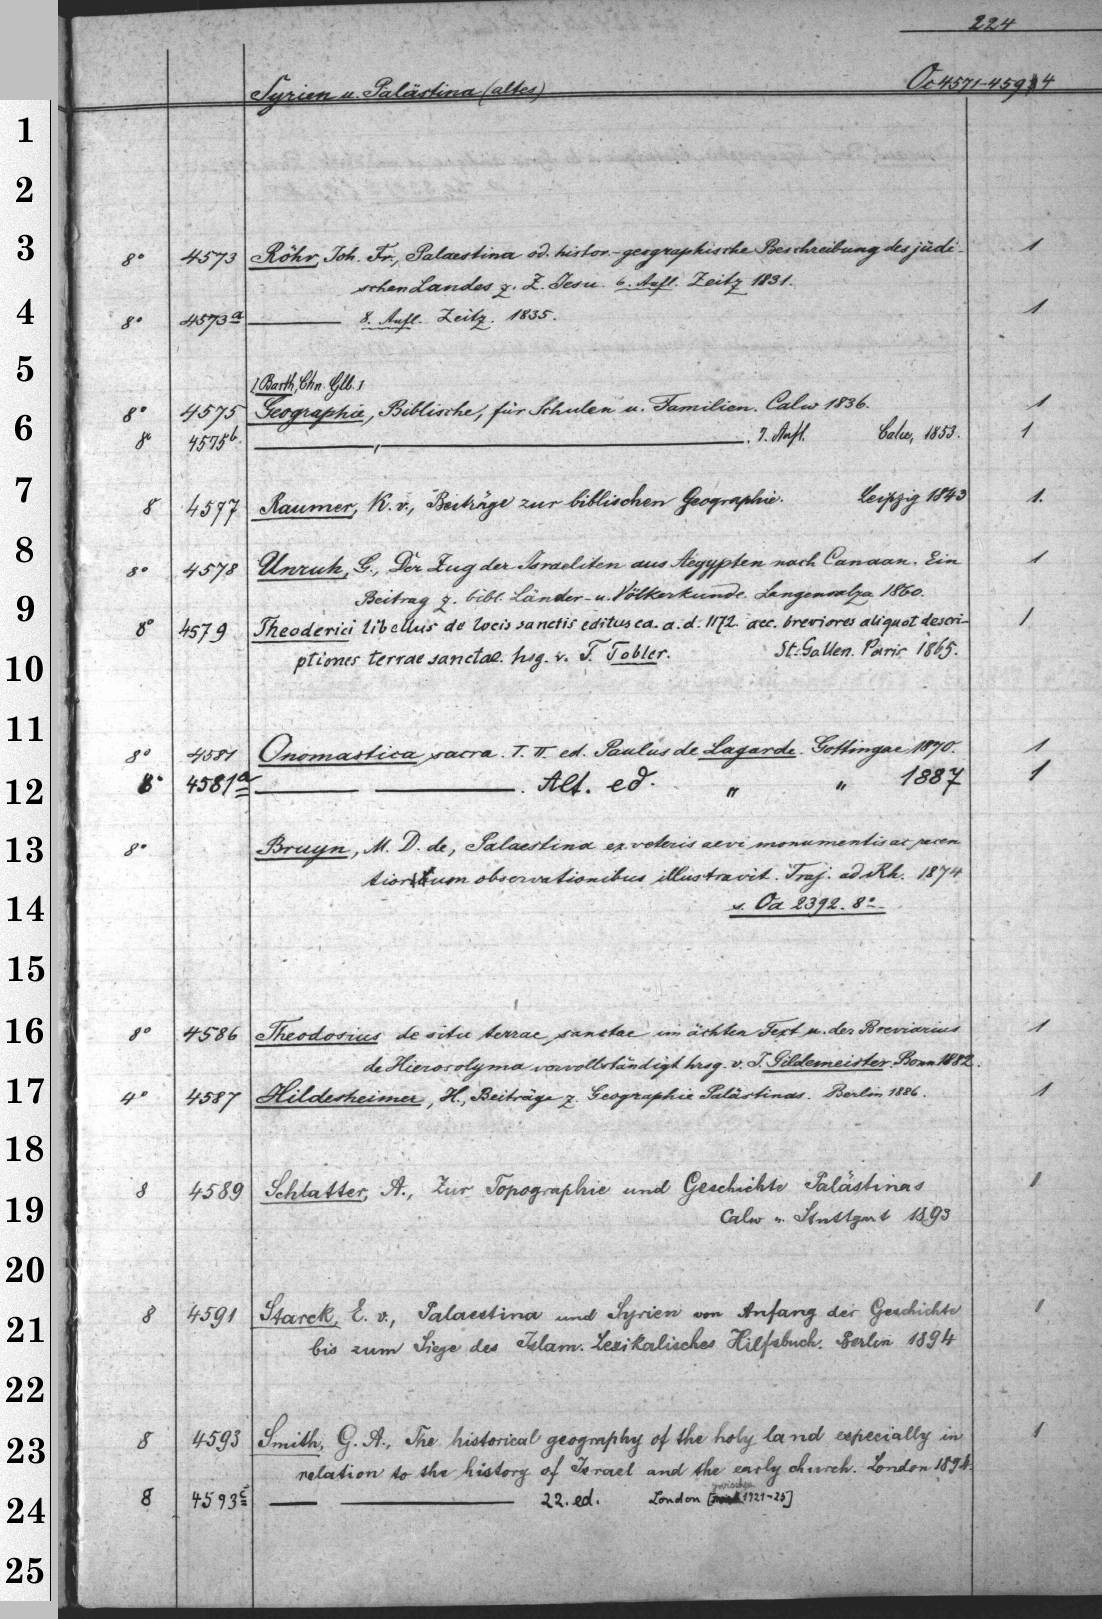 224
Syrien u. Palästina (altes) Oc 4571-4594
1
2
3
8° 4573 Röhr, Joh. Fr., Palaestina od. histor.-geographische Beschreibung des jüdi- 1
schen Landes z. Z. Jesu. 6. Aufl. Zeitz 1831.
4
8° 4573a 8. Aufl. Zeitz. 1835. 1
5
[Barth, Chn. Glb.]
8° 4575 Geographie, Biblische, für Schulen u. Familien. Calw 1836. 1
6
8° 4575b. , . 7. Aufl. Calw, 1853. 1
7
8 4577 Raumer, K. v., Beiträge zur biblischen Geographie. Leipzig 1843 1.
8
8° 4578 Unruh, G., Der Zug der Israeliten aus Aegypten nach Canaan. Ein 1
Beitrag z. bibl. Länder- u. Völkerkunde. Langensalza 1860.
9
8° 4579 Theoderici libellus de locis sanctis editus ca. a. d. 1172. acc. breviores aliquot descri- 1
ptiones terrae sanctae. hsg. v. T. Tobler. St. Gallen. Paris 1865.
10
11
8° 4581 Onomastica sacra. T. II. ed. Paulus de Lagarde. Gottingae 1870. 1
12
8° 4581a . Alt. ed. " " 1887 1
13
8° Bruyn, M. D. de, Palaestina ex veteris aevi monumentis ac recen
tiorum observationibus illustravit. Traj. ad Rh. 1874
14
s. Oa 2392. 8°
15
16
8° 4586 Theodosius de situ terrae sanctae im ächten Text u. der Breviarius 1
de Hierosolyma vervollständigt hrsg. v. J. Gildemeister. Bonn 1882.
17
4° 4587 Hildesheimer, H., Beiträge z. Geographie Palästinas. Berlin 1886. 1
18
8 4589 Schlatter, A., Zur Topographie und Geschichte Palästinas 1
19
Calw u. Stuttgart 1893
20
8 4591 Starck, E. v., Palaestina und Syrien von Anfang der Geschichte 1
21
bis zum Siege des Islam. Lexikalisches Hilfsbuch. Berlin 1894
22
8 4593 Smith, G. A., The historical geography of the holy land especially in 1
23
relation to the history of Israel and the early church. London 1894.
8 4593c 22. ed. London [zwischen 1921-25]
24
25